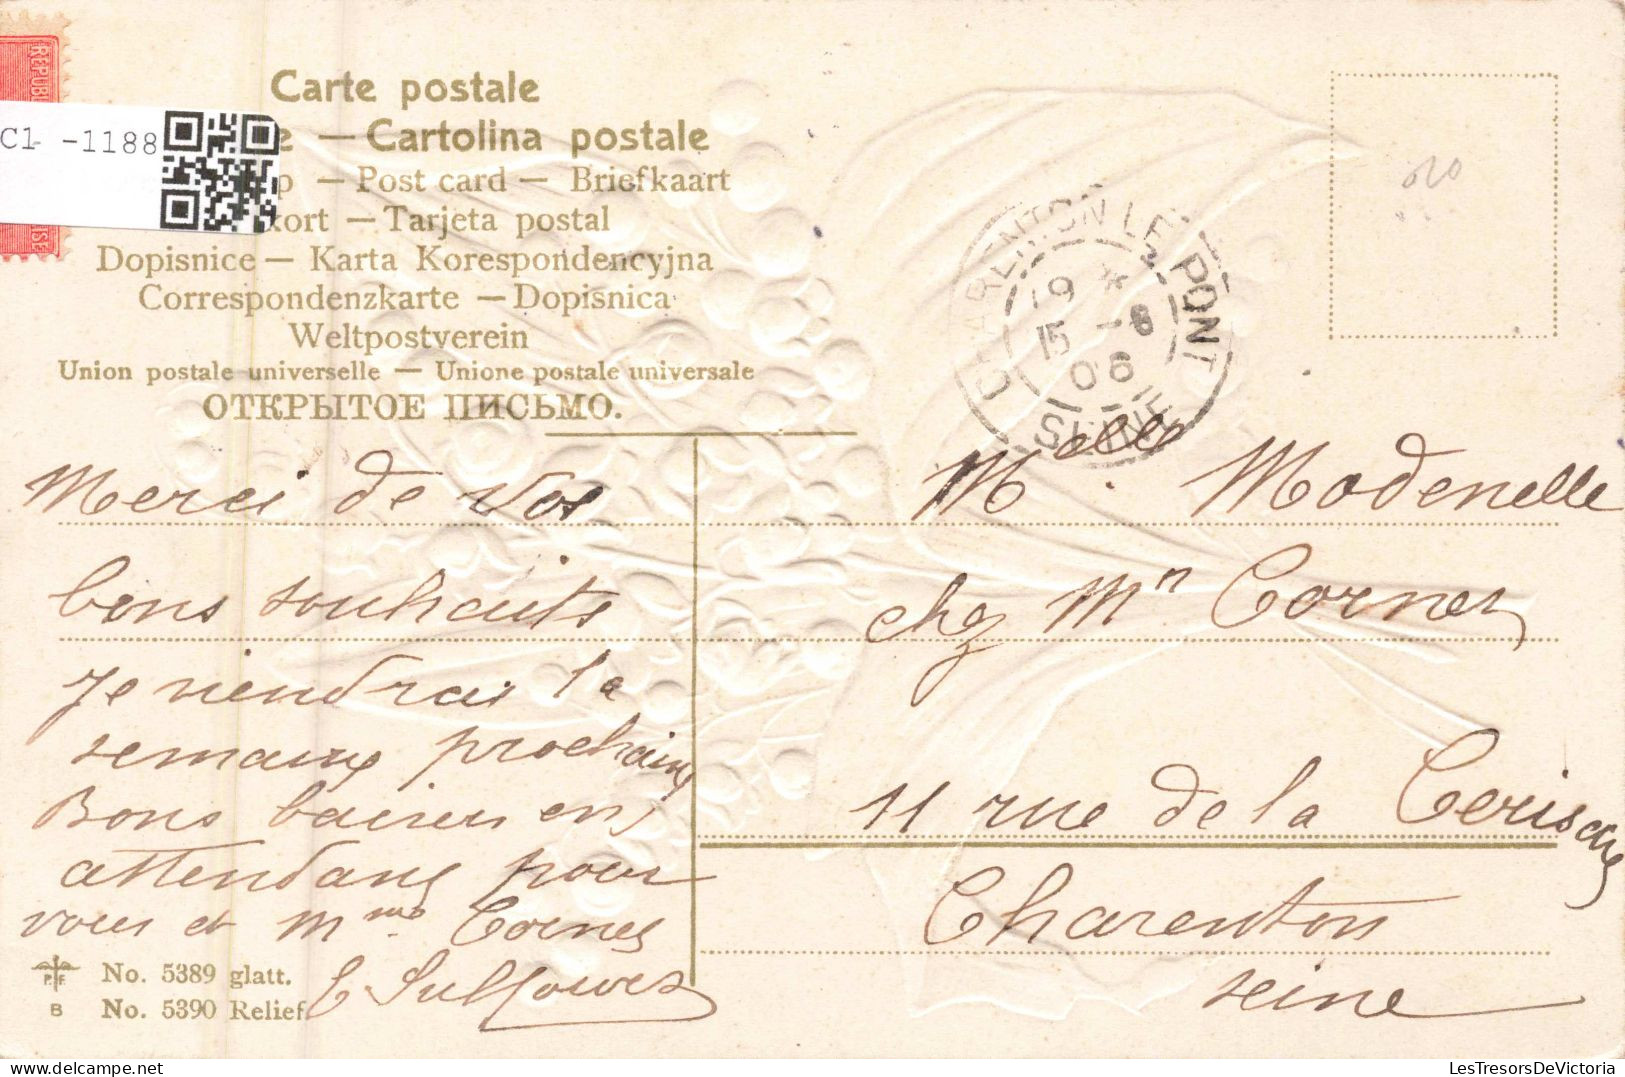 Carte postale
e — Cartolina postale
p — Post card — Briefkaart
kort — Tarjeta postal
Dopisnice — Karta Korespondencyjna
Correspondenzkarte — Dopisnica
Weltpostverein
Union postale universelle — Unione postale universale
ОТКРЫТОЕ ПИСЬМО.
C1 -1188
REPUBL
ISE
CHARENTON LE PONT
19 *
15 -6
06
SEINE
Merci de vos
bons souhaits
Je viendrai la
semaine prochaine
Bons baisers en
attendant pour
vous et Mme Cornes
Melle Modenelle
chez Mr Cornes
11 rue de la Cerisaie
Charenton
seine
P.F.
B
No. 5389 glatt.
No. 5390 Relief
www.delcampe.net
LesTresorsDeVictoria